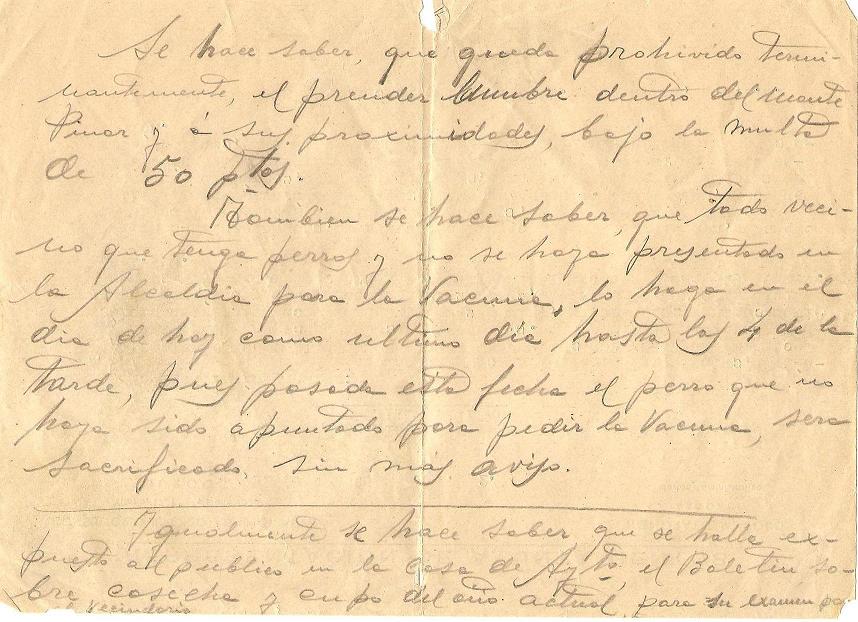 Se hace saber, que queda prohivido termi-
nantemente, el prender lumbre dentro del monte
Pinar y á sus proximidades, bajo la multa
de 50 ptas.
Tambien se hace saber, que todo veci-
no que tenga perros y no se haya presentado en
la Alcaldia para la Vacuna, lo haga en el
dia de hoy como ultimo dia hasta las 4 de la
tarde, pues pasada esta fecha el perro que no
haya sido apuntado para pedir la Vacuna, sera
sacrificado, sin más aviso.
Igualmente se hace saber que se halla ex-
puesto al publico en la Casa de Aytº, el Boletin so-
bre cosecha y cupo del año actual para su examen por
el Vecindario